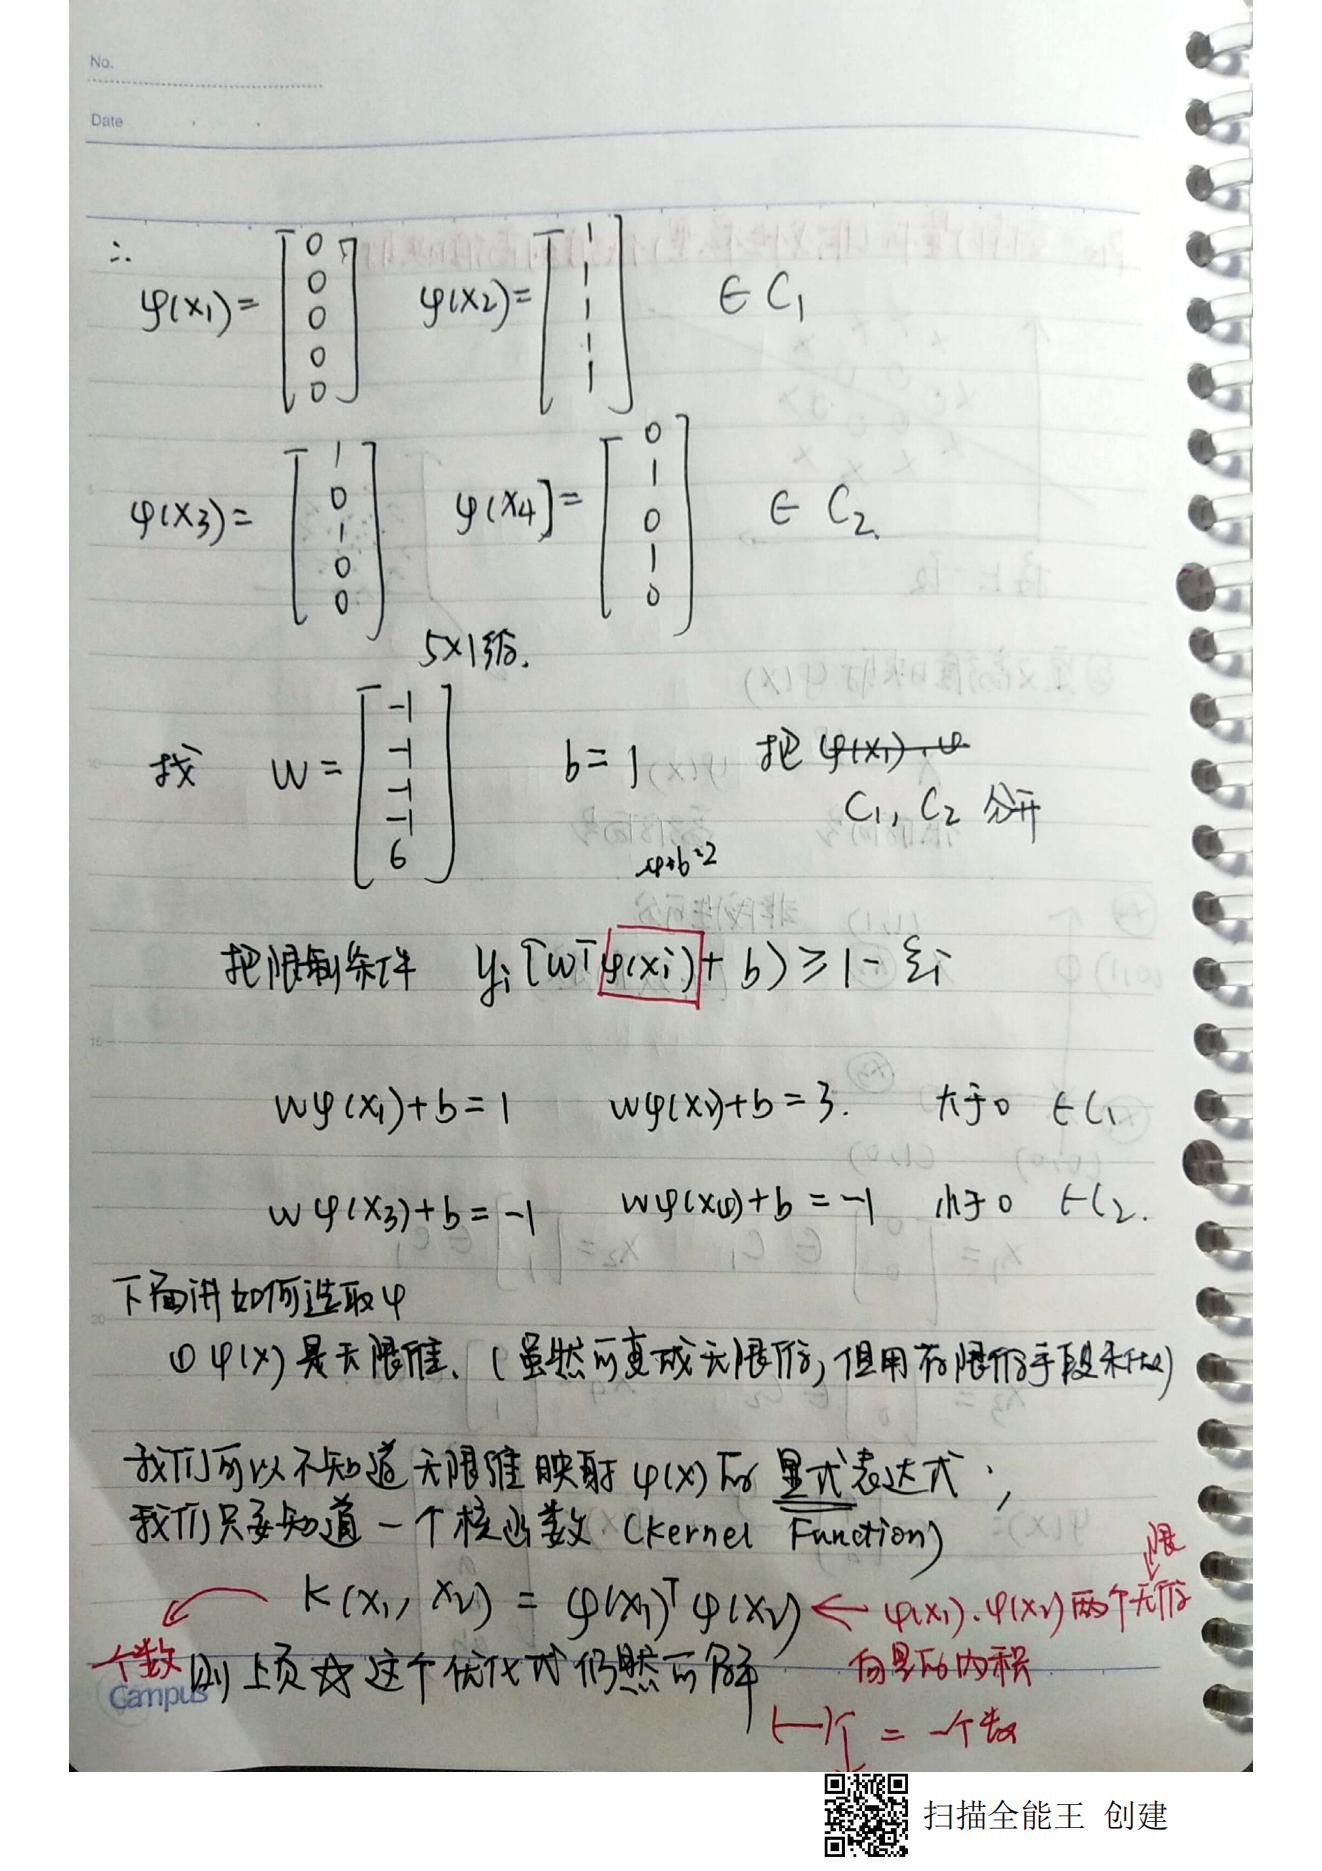 No.
Date
∴ φ(x₁) = [0 0 0 0 0] φ(x₂) = [1 1 1 1 1] ∈ C₁
φ(x₃) = [1 0 1 0 0] φ(x₄] = [0 1 0 1 0] ∈ C₂
5×1维.
找 W = [-1 -1 -1 -1 6] b = 1 把 φ(x₁), φ
C₁, C₂ 分开
把限制条件 yᵢ [wᵀφ(xᵢ) + b) ≥ 1 - ξᵢ
Wφ(x₁)+b = 1 Wφ(x₂)+b = 3. 大于0 ∈C₁
Wφ(x₃)+b = -1 Wφ(x₄)+b = -1 小于0 ∈C₂.
下面讲如何选取φ
① φ(x) 是无限维. (虽然可变成无限维, 但用有限维手段来做)
我们可以不知道无限维映射 φ(x) 的显式表达式;
我们只要知道一个核函数 (Kernel Function)
限
K(x₁, x₂) = φ(x₁)ᵀ φ(x₂) ← φ(x₁).φ(x₂) 两个无维
一个数 则上页☆这个优化式仍然可解 向量的内积
Campus
= 一个数
扫描全能王 创建